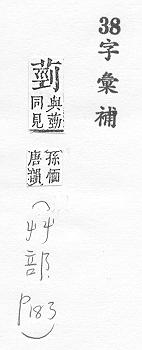 38字彙補
與
同見
孫
唐韻
(艸部P183)